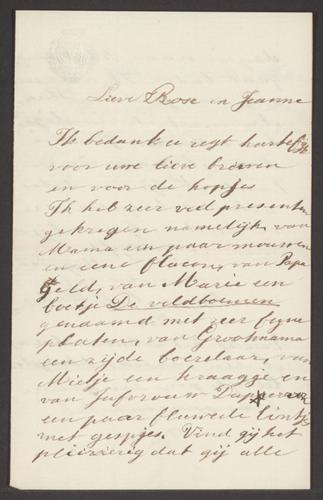 Lieve Rose en Jeanne
Ik bedank u regt hartelijk
voor uwe lieve brieven
en voor de hopjes
Ik heb zeer veel presenten
gekregen namelijk van
Mama een paar mouwen
en eene flacon, van Papa
Geld, van Marie een
boekje De veldbloemen
genaamd met zeer fijne
platen, van Grootmama
een zijde boezelaar, van
Mietje een kraagje en
van Jufvrouw
een paar fluweele lintjes
met gespjes. Vind gij het
pleizierig dat gij alle